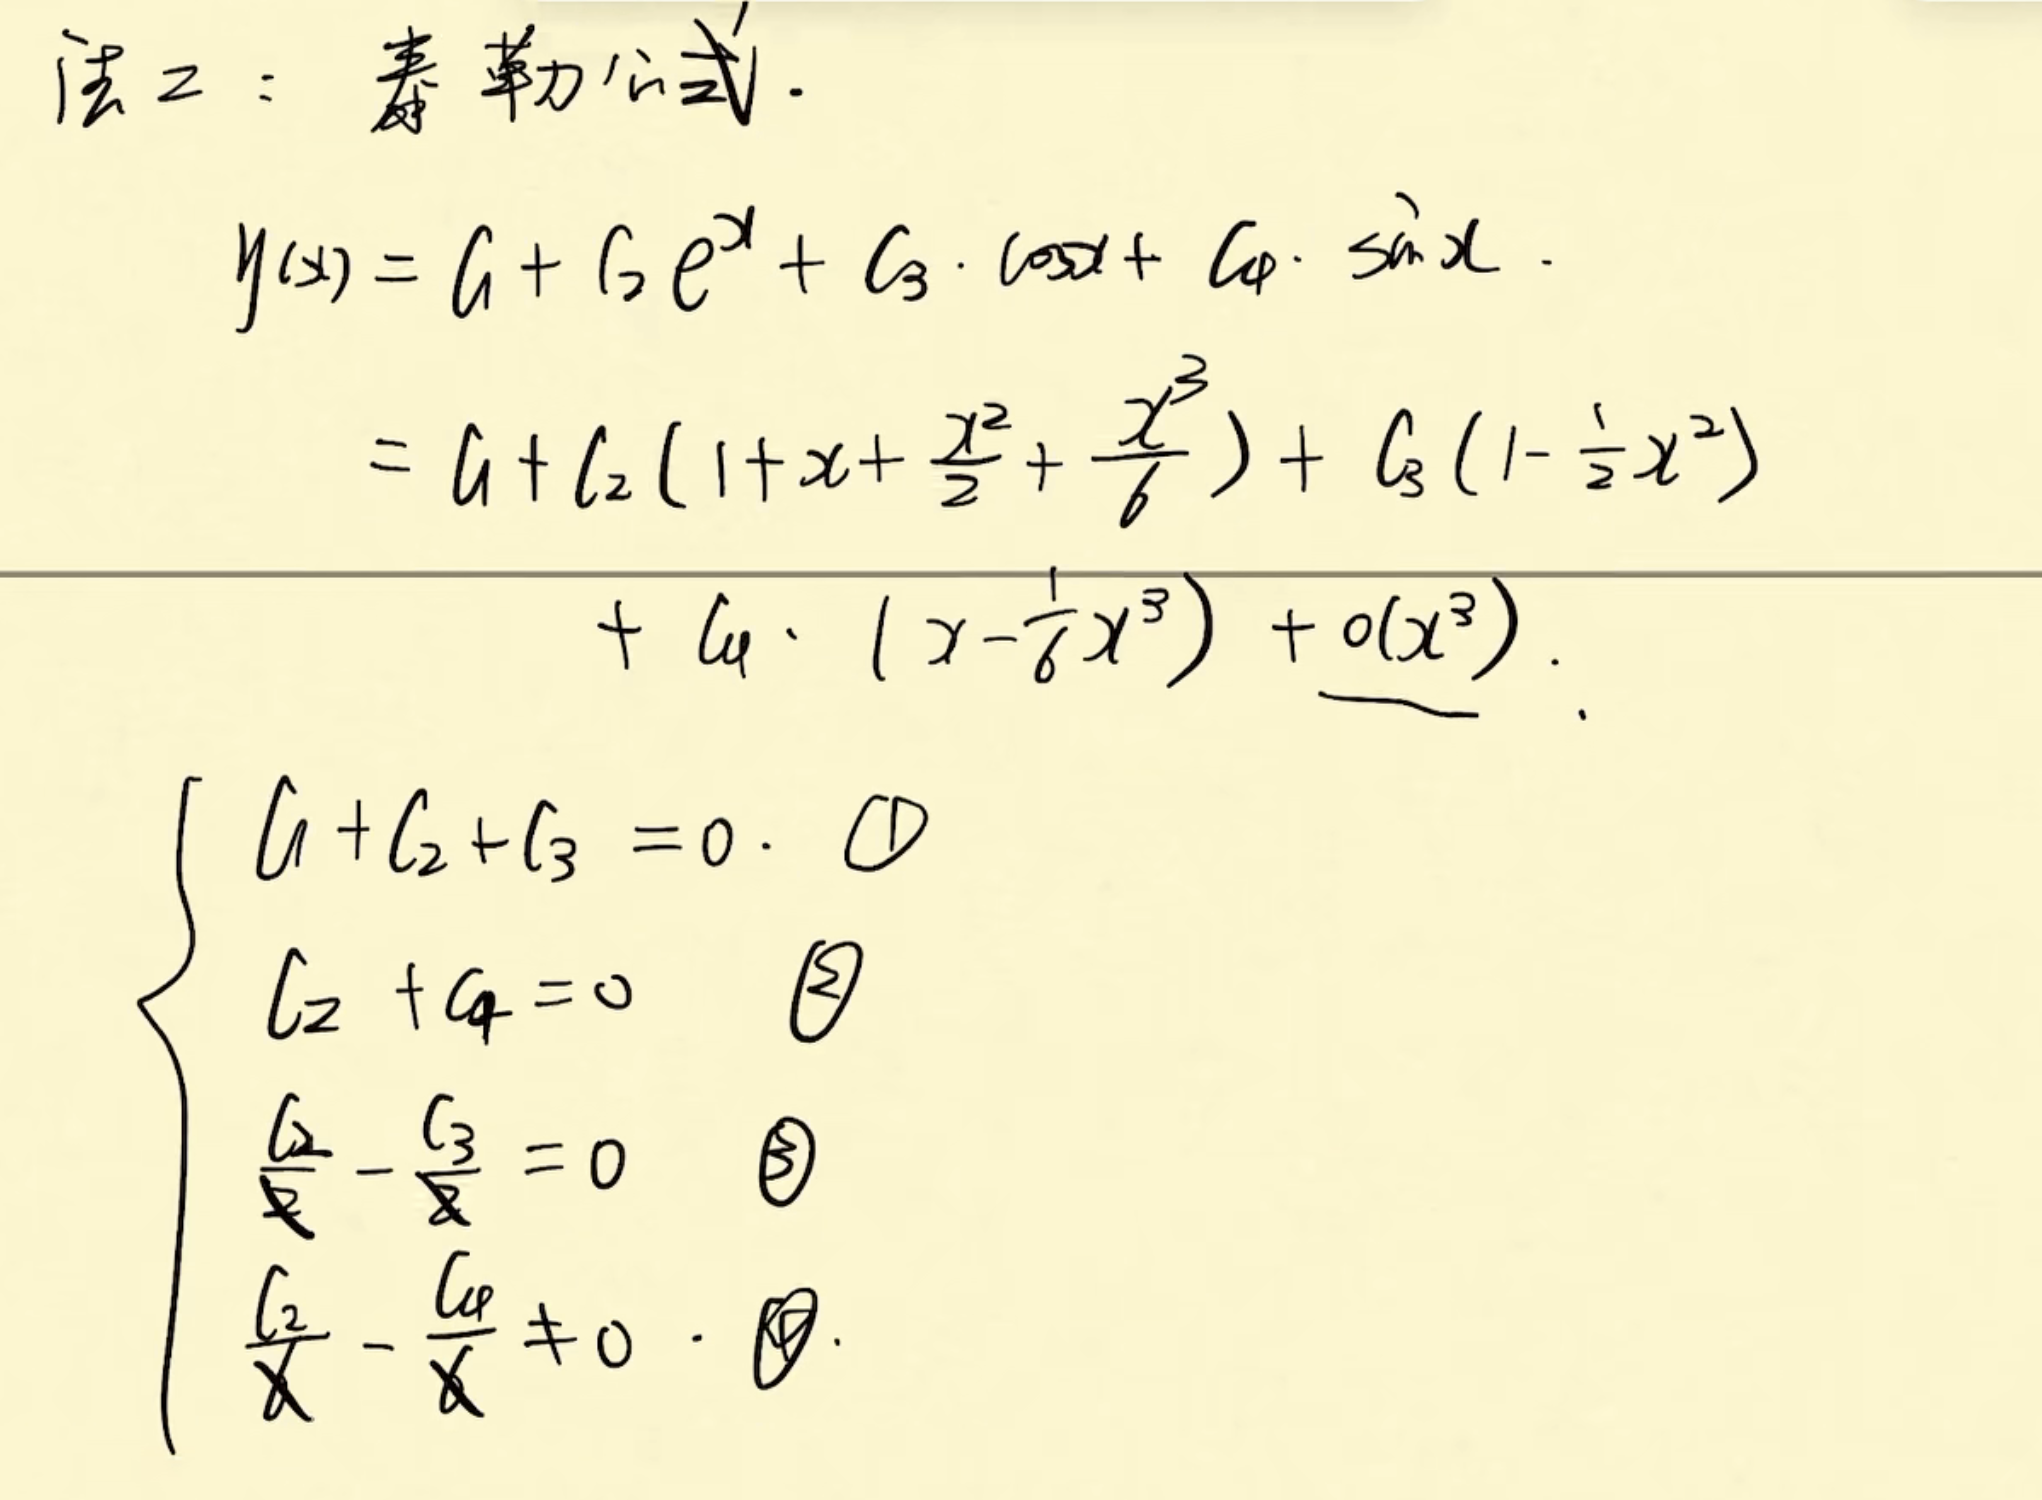 法2：泰勒公式.
y(x) = C₁ + C₂eˣ + C₃·cosx + C₄·sinx.
= C₁ + C₂(1+x+x²/2+x³/6) + C₃(1-1/2x²)
+ C₄·(x-1/6x³) + o(x³).
C₁+C₂+C₃=0. ①
C₂+C₄=0 ②
C₂/2-C₃/2=0 ③
C₂/6-C₄/6≠0. ④.